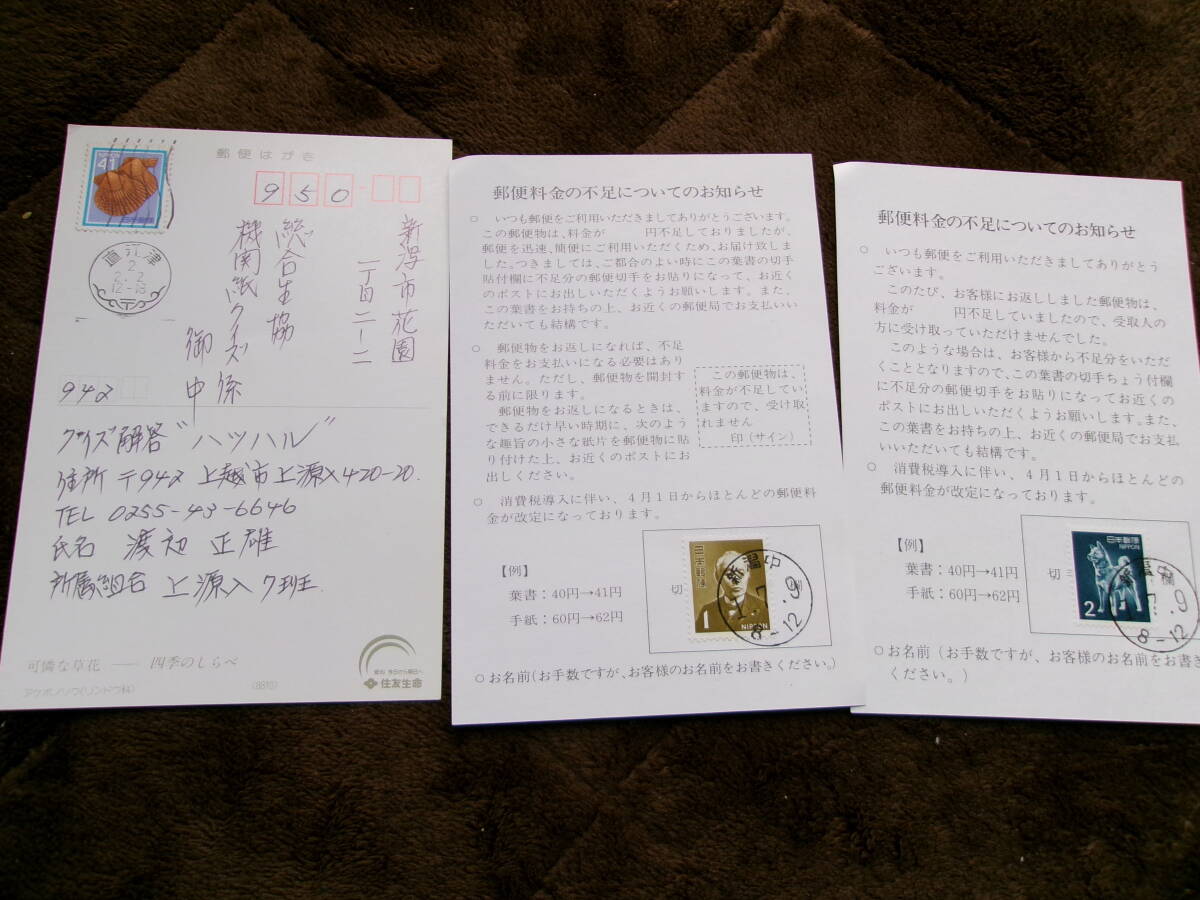 郵便はがき
NIPPON
41
日本郵便
950
直江津
2
2.2
12-18
〒
新潟市花園
一丁目二ー二
総合生協
機関紙クイズ係
御中
942
クイズ解答"ハツハル"
住所 〒942 上越市上源入420-20.
TEL 0255-43-6646
氏名 渡辺 正雄
所属組合 上源入 7班
可憐な草花 ― 四季のしらべ
アケボノソウ(リンドウ科)
(8810)
住友生命
郵便料金の不足についてのお知らせ
○ いつも郵便をご利用いただきましてありがとうございます。
この郵便物は、料金が 円不足しておりましたが、
郵便を迅速、簡便にご利用いただくため、お届け致しま
した。つきましては、ご都合のよい時にこの葉書の切手
貼付欄に不足分の郵便切手をお貼りになって、お近く
のポストにお出しいただくようお願いします。また、
この葉書をお持ちの上、お近くの郵便局でお支払いい
ただいても結構です。
○ 郵便物をお返しになれば、不足
料金をお支払いになる必要はあり
ません。ただし、郵便物を開封す
る前に限ります。
郵便物をお返しになるときは、
できるだけ早い時期に、次のよう
な趣旨の小さな紙片を郵便物に貼
り付けた上、お近くのポストにお
出しください。
この郵便物は、
料金が不足してい
ますので、受け取
れません
印(サイン)
○ 消費税導入に伴い、4月1日からほとんどの郵便料
金が改定になっております。
【例】
葉書:40円→41円
手紙:60円→62円
切
日本郵便
1
NIPPON
新潟中
1.7.9
8-12
○お名前(お手数ですが、お客様のお名前をお書きください。)
郵便料金の不足についてのお知らせ
○ いつも郵便をご利用いただきましてありがとう
ございます。
このたび、お客様にお返ししました郵便物は、
料金が 円不足していましたので、受取人の
方に受け取っていただけませんでした。
このような場合は、お客様から不足分をいただ
くこととなりますので、この葉書の切手ちょう付欄
に不足分の郵便切手をお貼りになってお近くの
ポストにお出しいただくようお願いします。また、
この葉書をお持ちの上、お近くの郵便局でお支払
いいただいても結構です。
○ 消費税導入に伴い、4月1日からほとんどの
郵便料金が改定になっております。
【例】
葉書:40円→41円
手紙:60円→62円
切
日本郵便
NIPPON
2
欄
7.9
8-12
○お名前(お手数ですが、お客様のお名前をお書き
ください。)